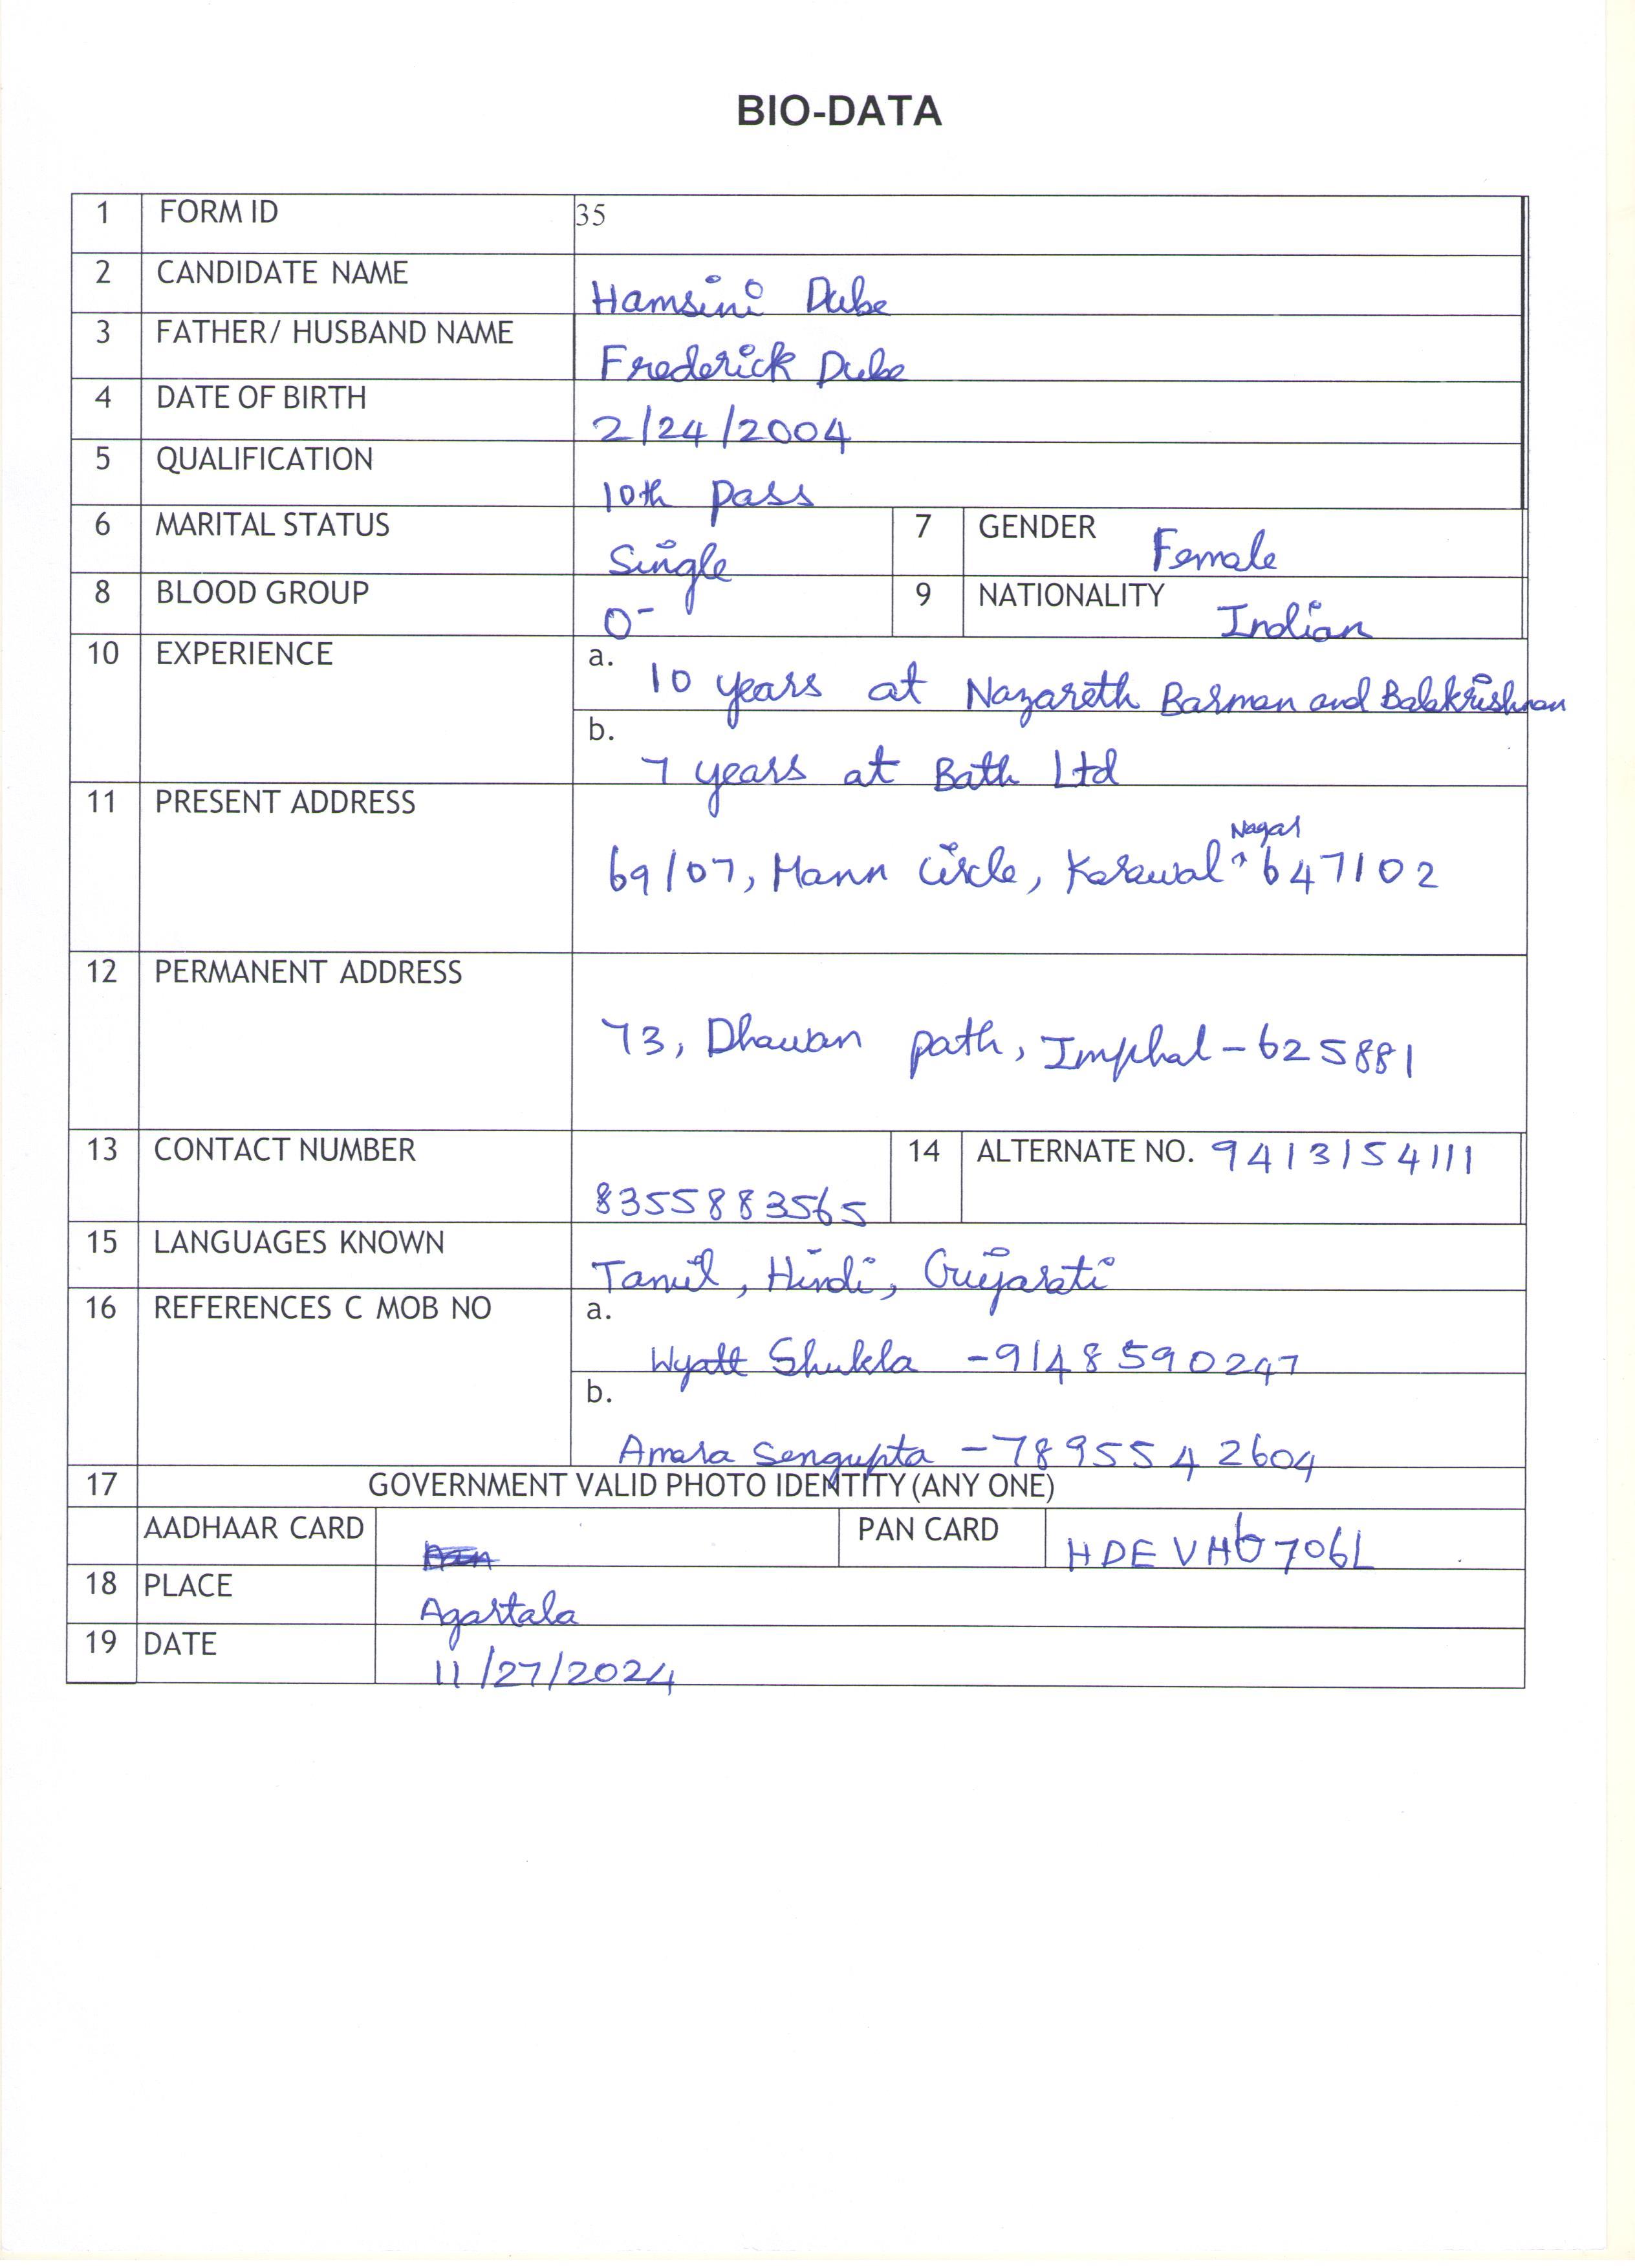 BIO-DATA
1 FORM ID 35
2 CANDIDATE NAME Hamsini Dube
3 FATHER/ HUSBAND NAME Frederick Dube
4 DATE OF BIRTH 2/24/2004
5 QUALIFICATION 10th pass
6 MARITAL STATUS Single 7 GENDER Female
8 BLOOD GROUP O- 9 NATIONALITY Indian
10 EXPERIENCE a. 10 years at Nazareth Barman and Balakrishnan
b. 7 years at Bath Ltd
11 PRESENT ADDRESS 69/07, Mann Circle, Karawal Nagar 647102
12 PERMANENT ADDRESS 73, Dhawan path, Imphal - 625881
13 CONTACT NUMBER 8355883565 14 ALTERNATE NO. 9413154111
15 LANGUAGES KNOWN Tamil, Hindi, Gujarati
16 REFERENCES C MOB NO a. Wyatt Shukla - 9148590247
b. Amara Sengupta - 7895542604
17 GOVERNMENT VALID PHOTO IDENTITY (ANY ONE)
AADHAAR CARD PAN CARD HDEVH6706L
18 PLACE Agartala
19 DATE 11/27/2024